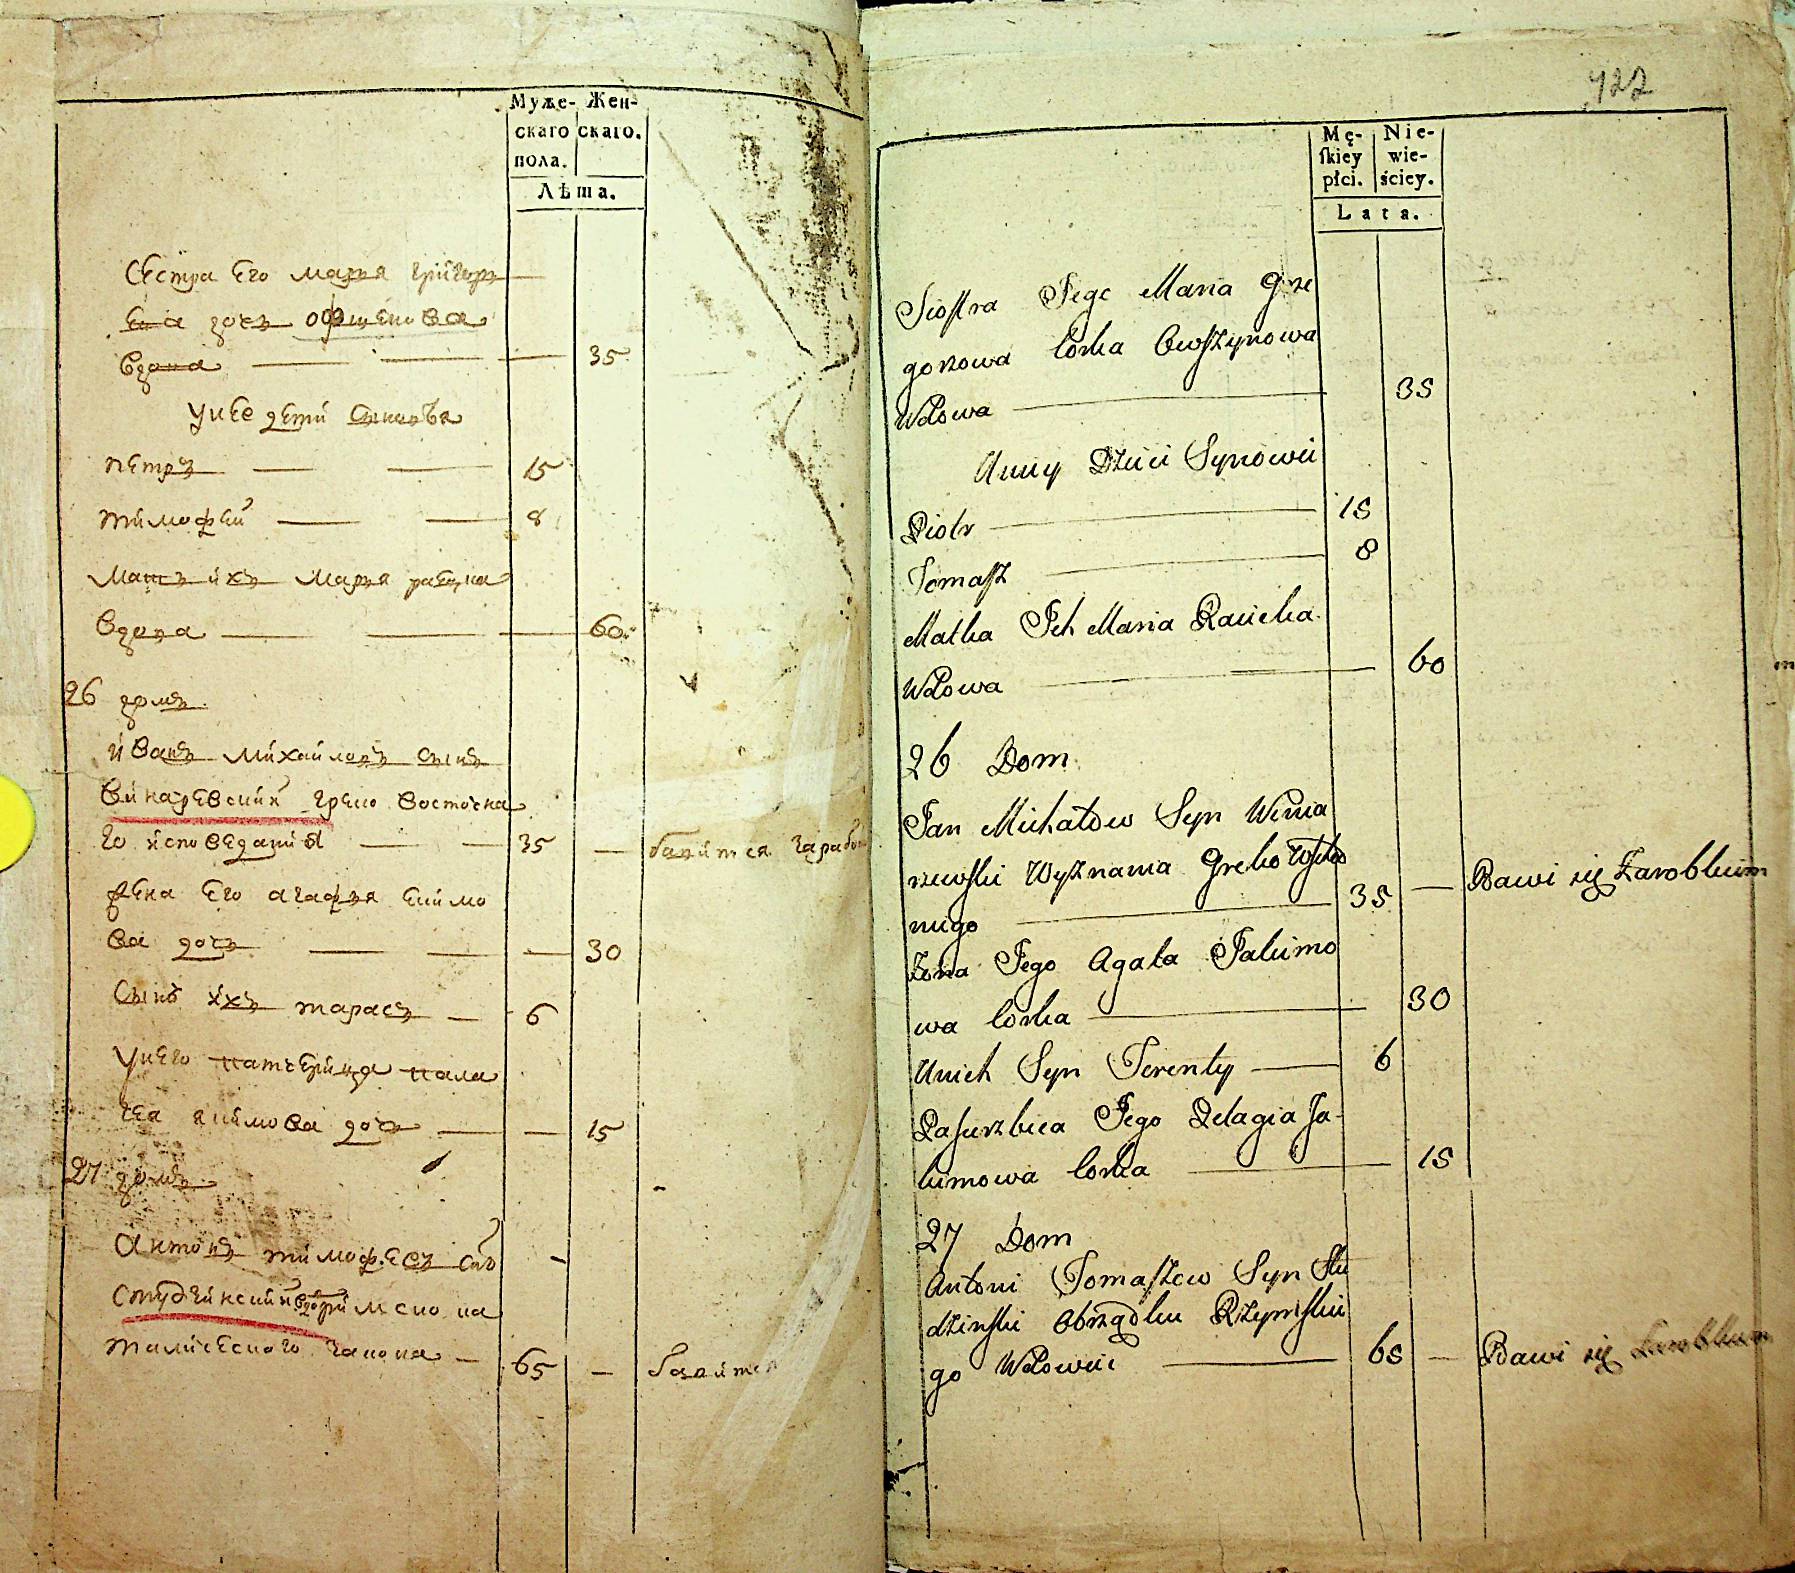 Муже- Жен-
скаго скаго.
пола.
Лѣта.
Сестра Его марья григорь
Ева дочь офшенова
вдова — 35
У нее дети сыновья
петръ — 15
тимофей — 8
Мать ихъ Марья
вдова — 60
26 домъ
иванъ михайловъ сынъ
винаревский греко восточна
го исповедания — 35 — бавится зарабо
жена Его агафья екимо
ва дочь — 30
Сынъ ихъ тарасъ — 6
У него патчерица пала
гея якимова дочь — 15
27 домъ
антонъ тимофеевъ сын
студзинский римско ка
толического закона — 65 — бавится
722
Mę- Nie-
skiey wie-
płci. ściey.
Lata.
Siostra Jego Maria Grze
gorzowa Corka Owszynowa
Wdowa — 35
U niey Dzieci Synowie
Piotr — 15
Tomasz — 8
Matka Ich Maria
Wdowa — 60
26 Dom
Jan Michałow Syn Winia
rzewski Wyznania Greko Wscho
niego — 35 — Bawi się Zarobkiem
Żona Jego Agata Jakimo
wa Corka — 30
U nich Syn Terenty — 6
Pasierzbica Jego Pelagia Ja-
kimowa Corka — 15
27 Dom
Antoni Tomaszew Syn Stu
dzinski Obrządku Rzymskie
go Wdowiec — 65 — Bawi się Zarobkiem